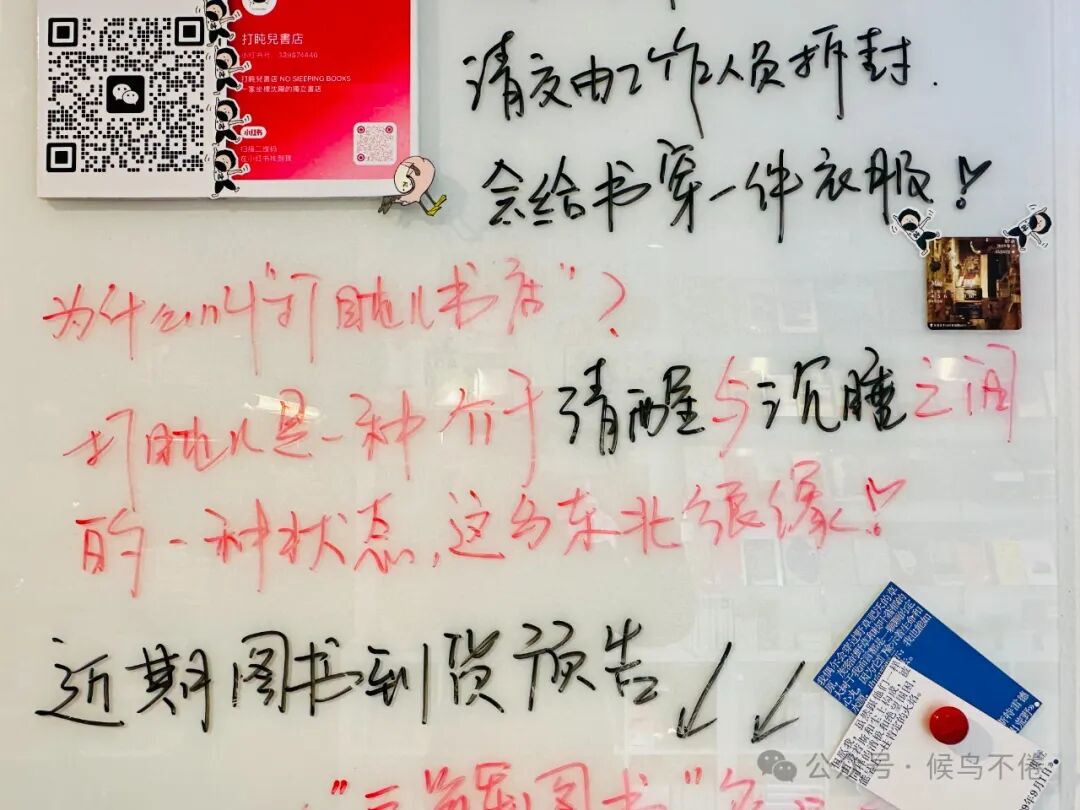 打盹兒書店
打盹兒書店 NO SLEEPING BOOKS
一家坐標沈陽的獨立書店
小红书
扫描二维码
在小红书找到我
请交由工作人员拆封.
会给书穿一件衣服!
为什么叫“打盹儿书店”?
打盹儿是一种介于清醒与沉睡之间
的一种状态,这与东北很像!
近期图书到货预告
公众号·候鸟不倦